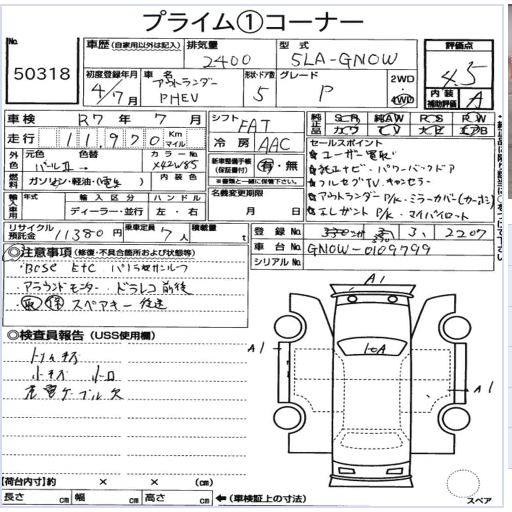 プライム①コーナー
No. 50318
車歴 (自家用以外は記入) 排気量 2400 型式 5LA-GN0W 評価点 4.5
初度登録年月 4/7月 車名 アウトランダー PHEV 形状・ドア数 5 グレード P 2WD 4WD 内装補助評価 A
車検 R7年7月 シフト FAT 純正品
走行 11,970 Km マイル 冷房 AAC
セールスポイント
外色 元色 パールII→ 色替 カラーNo. X42W85 新車整備手帳(保証書付) 有・無
※書類と一緒に保管して下さい。
★ユーザー買取
燃料 ガソリン・軽油・(電気) 内装色 名義変更期限 月 日
★フルセグTV
輸入車 年式 輸入区分 ハンドル
ディーラー・並行 左・右
★アウトランダーP/K・ミラーカバー
★エレガントP/K・マイパイロット
リサイクル預託金 11380円 乗車定員 7人 積載量 t
登録 No. 3, 2207
車台 No. GN0W-0109799
シリアル No.
◎注意事項 (修復・不具合箇所および状態等)
BCSC ETC パノラマサンルーフ
アラウンドモニター ドラレコ前後
取 保 スペアキー 後送
◎検査員報告 (USS使用欄)
トリムキズ
小キズ 小凹
充電ケーブル欠
A1
A1
A1
【荷台内寸】約 × × (cm)
長さ cm 幅 cm 高さ cm ←(車検証上の寸法)
スペア